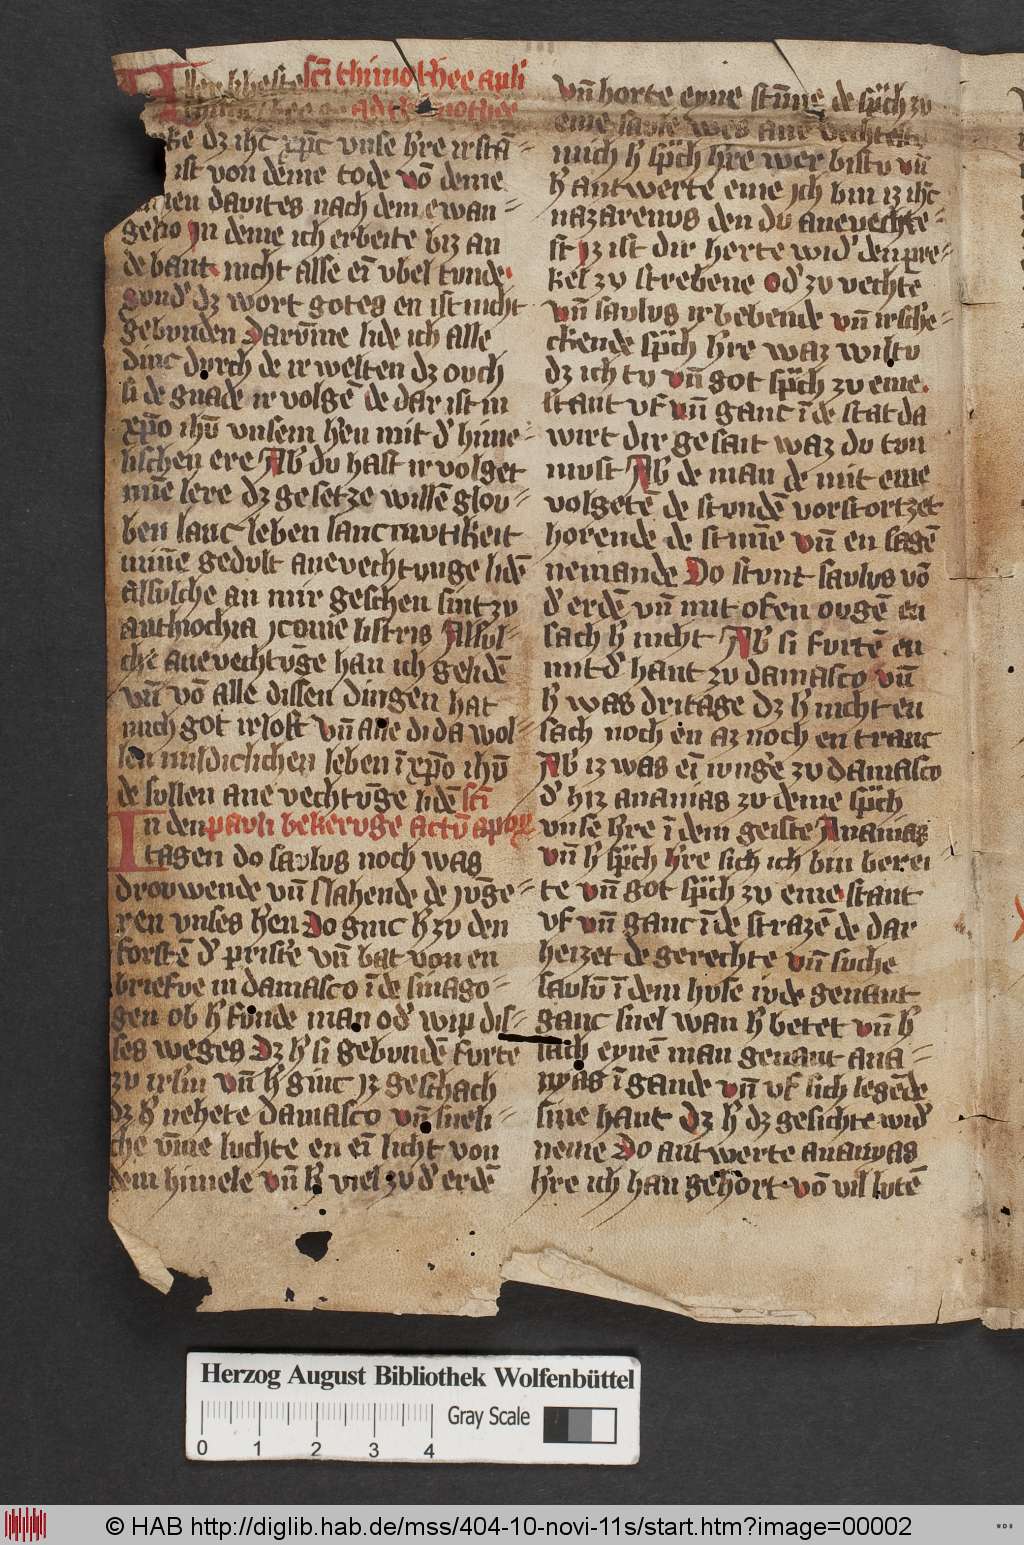 Aller libeste sc̄i thimothee apl'i
thimothee ge ad thimothee
ke dz ihc̄ xp̄c vnse h're irstā⸗
ist von deme tode vō deme
samen dauites nach dem ewan⸗
gelio Jn deme ich erbeite biz an
de bant nicht alse eī vbel tunde
sund' dz wort gotes en ist nicht
gebunden Darūme lide ich alle
dinc durch de ir welten dz ouch
si de gnade ir volgē de dar ist in
xp̄o ihū vnsem h'en mit d' hime⸗
lischen ere Ab' du hast ir volget
mīe lere dz gesetze willē glou⸗
ben lanc leben lancmutikeit
minne gedult anevechtunge lidē
alsulche an mir geschen sint zu
anthiochia iconie listris Alsul⸗
che anevechtūge han ich gelidē
vn̄ vō alle dissen dingen hat
mich got irlost vn̄ alle di da wol⸗
len mildiclichen leben ī xp̄o ihū
de sullen ane vechtūge lidē sc̄i
In den pauli bekeruge actū apl'or
tagen do saulus noch was
drouwende vn̄ slahende de iūge⸗
ren vnses h'en Do ginc h' zu den
forstē d' prist'e vn̄ bat von en
briefve in damasco ī de sinago⸗
gen ob h' funde man od' wip dis⸗
ses weges Dz h' si gebundē furte
zu irl'm vn̄ h' ginc Jz geschach
dz h' nehete damasco vn̄ sneli⸗
che vm̄e luchte en eī licht von
dem himele vn̄ h' viel zu d' erdē
vn̄ horte eyne stim̄e de sp͛ch zu
eme saule wes ane vechtestu
mich h' sp͛ch h're wer bistu vn̄
h' antwerte eme ich bin iz ihc̄
nazarenus den du anevechte⸗
st iz ist dir herte wid' den pre⸗
kel zu strebene od' zu vechtē
vn̄ saulus irbebende vn̄ irsche⸗
ckende sp͛ch h're waz wiltu
dz ich tu vn̄ got sp͛ch zu eme
stant vf vn̄ ganc ī de stat da
wirt dir gesait waz du tun
must Ab' de man de mit eme
volgetē de stundē vorstortzet
horende de stim̄e vn̄ en sagē
nemande Do stunt saulus vō
d' erdē vn̄ mit ofen ougē en
sach h' nicht Ab' si furtē en
mit d' hant zu damasco vn̄
h' was dri tage dz h' nicht en
sach noch en az noch en tranc
Ab' iz was eī iung'e zu damasco
d' hiz ananias zu deme sp͛ch
vnse h're ī dem geiste Ananias
vn̄ h' sp͛ch h're sich ich bin berei⸗
te vn̄ got sp͛ch zu eme stant
vf vn̄ ganc ī de strazē de dar
heizet de gerechte vn̄ suche
saulū ī dem huse iude genant
ganc snel wan h' betet vn̄ h'
sach eynē man genant ana⸗
nyas ī gande vn̄ vf sich legēde
sine hant Dz h' dz gesichte wid'
neme Do antwerte ananyas
h're ich han gehort vō vil lutē
Herzog August Bibliothek Wolfenbüttel
Gray Scale
0 1 2 3 4
© HAB http://diglib.hab.de/mss/404-10-novi-11s/start.htm?image=00002